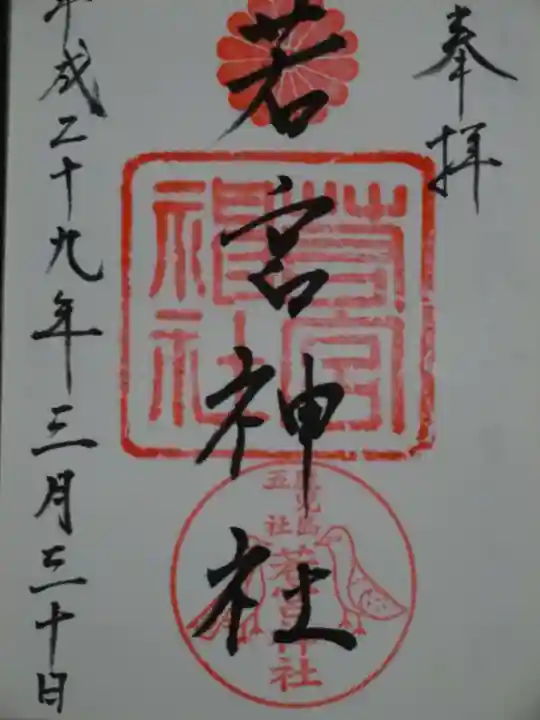 奉拝
若宮神社
若宮
神社
鹿児島
五社
若宮神社
平成二十九年三月三十日